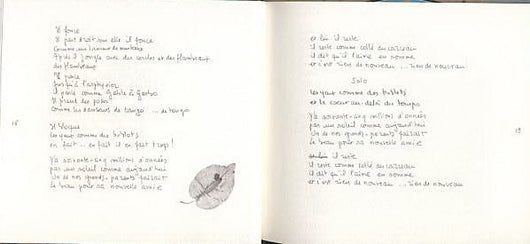 Il fonce
Il peut droit sur elle il fonce
Comme un
Après il jongle avec des cercles et des flambeaux
des flambeaux
Il parle
jusqu'à l'asphyxier
Il parle comme
Il prend des poses
Comme les danseurs de tango ... de tango
18
Il bloque
les yeux comme des hublots
en fait ... en fait il en fait trop !
Ya soixante-cinq millions d'années
par un soleil comme aujourd'hui
Un de nos grands-parents faisait
le beau pour sa nouvelle amie
et lui il reste
Il reste comme collé au carreau
il dit qu'il l'aime en somme
et c'est rien de nouveau ... rien de nouveau
Solo
les yeux comme des hublots
et le coeur au-delà du temps
Ya soixante-cinq millions d'années
par un soleil comme aujourd'hui
Un de nos grands-parents faisait
le beau pour sa nouvelle amie
19
il reste
Il reste comme collé au carreau
il dit qu'il l'aime en somme
et c'est rien de nouveau ... rien de nouveau